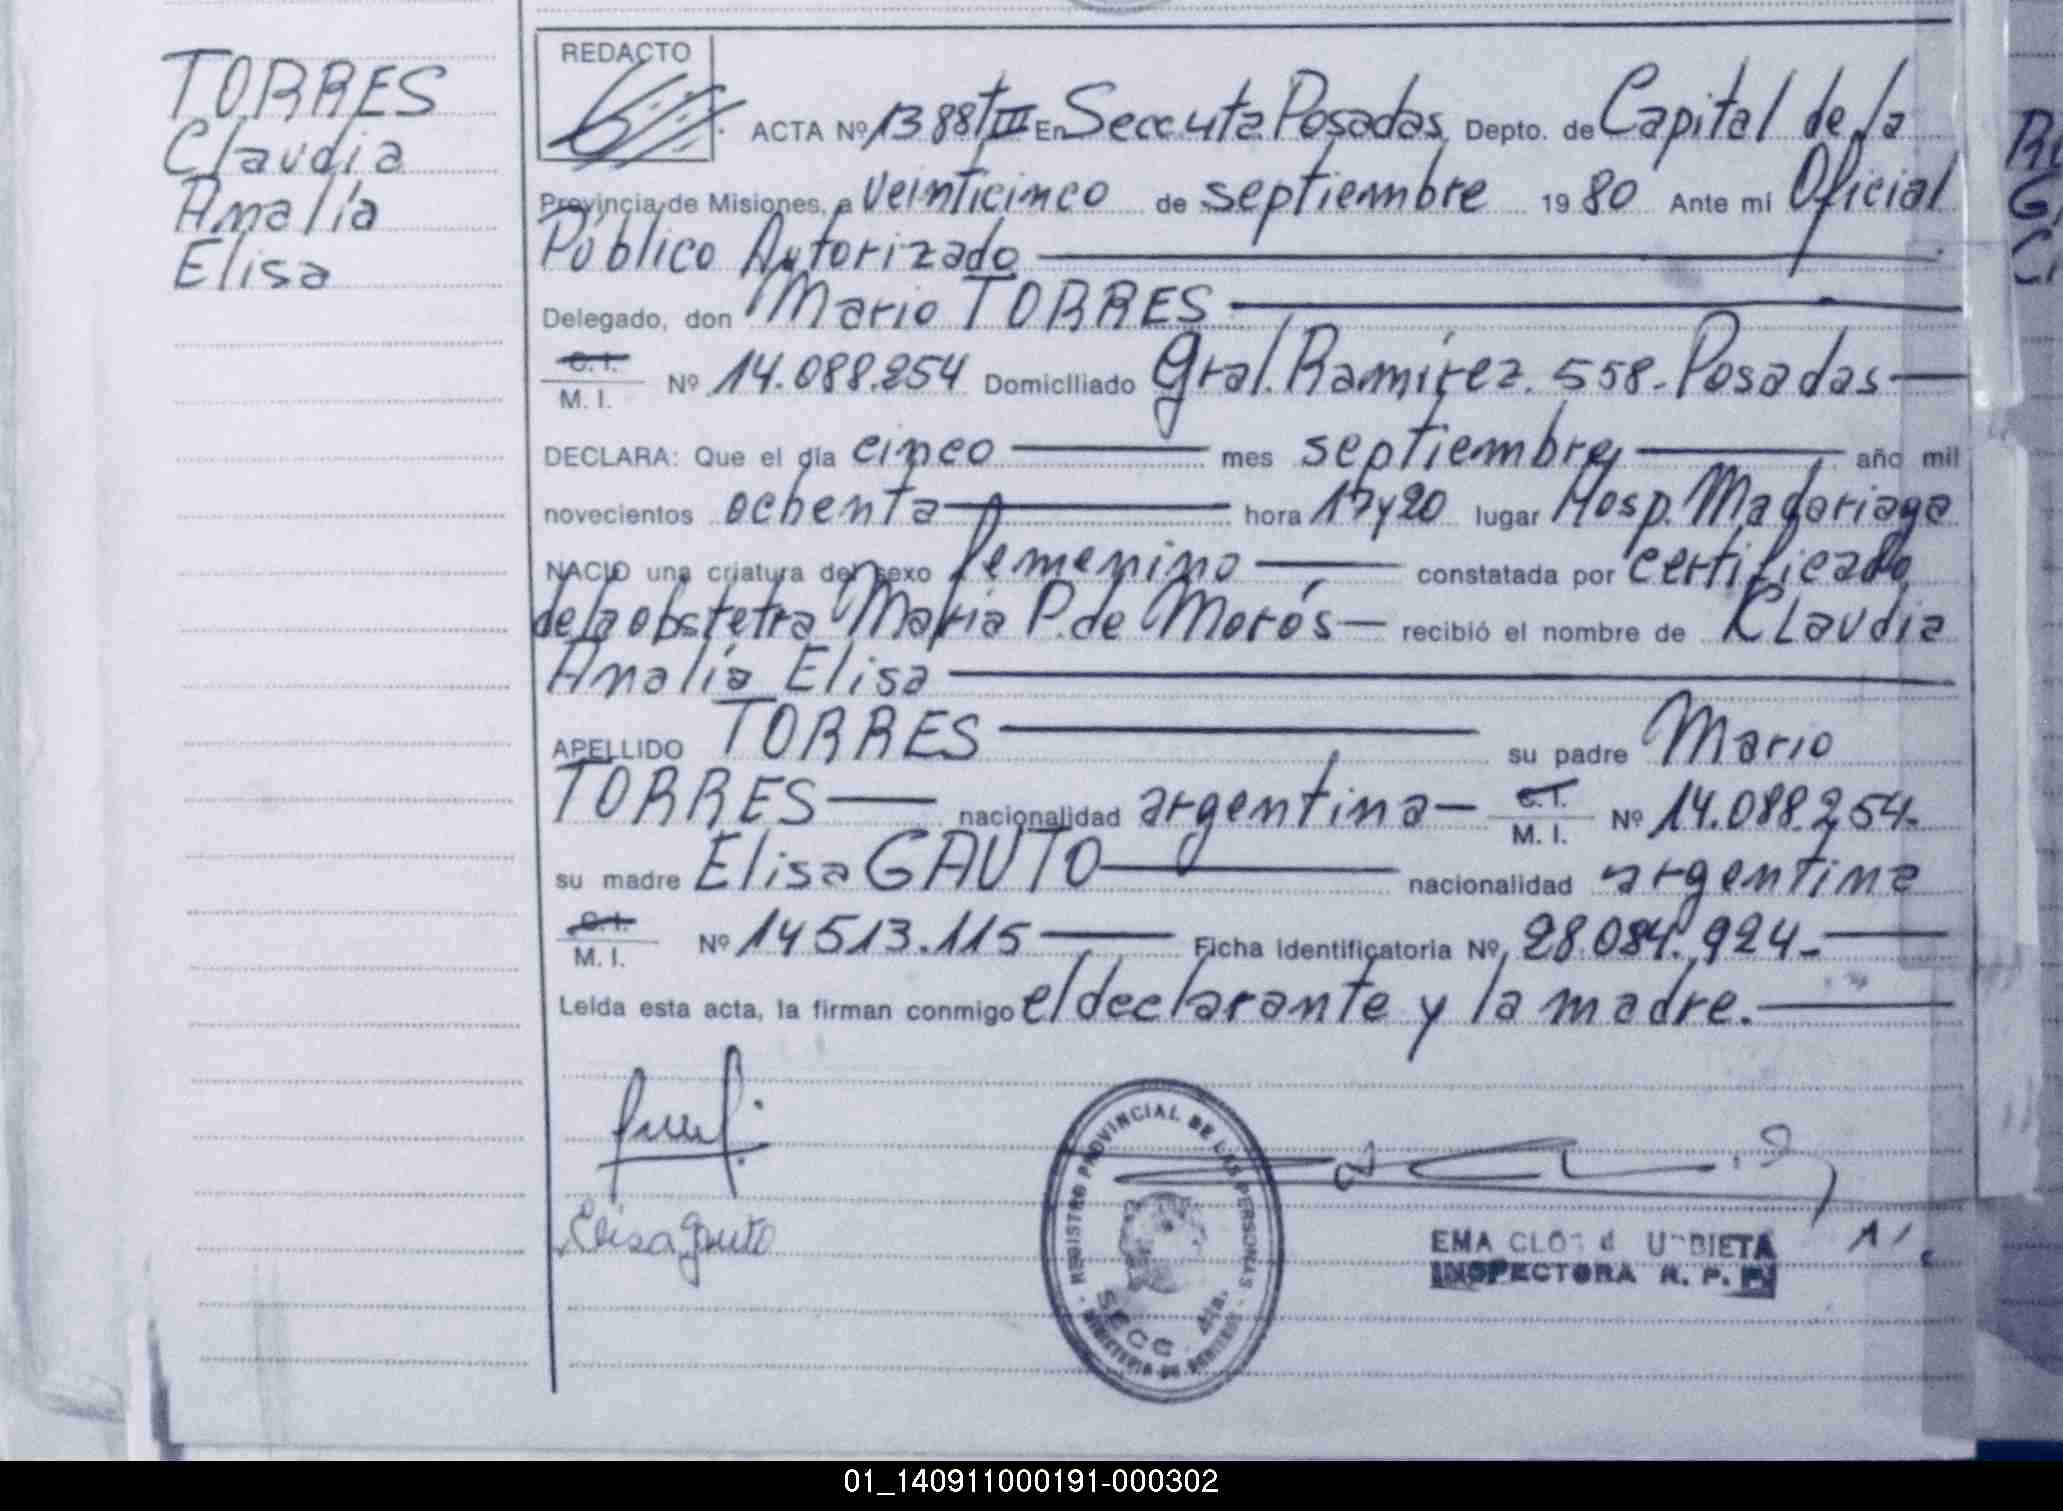 TORRES
Claudia
Analía
Elisa
REDACTO
ACTA Nº 1388 TIII En Secc 4ta Posadas Depto. de Capital de la
Provincia de Misiones, a veinticinco de septiembre 19 80 Ante mi Oficial
Público Autorizado
Delegado, don Mario TORRES
C. I.
M. I. Nº 14.088.254 Domiciliado Gral. Ramírez. 558. Posadas
DECLARA: Que el día cinco mes septiembre año mil
novecientos ochenta hora 17y20 lugar Hosp. Madariaga
NACIO una criatura del sexo femenino constatada por certificado
de la obstetra María P. de Morós recibió el nombre de CLaudia
Analía Elisa
APELLIDO TORRES su padre Mario
TORRES nacionalidad argentina C. I.
M. I. Nº 14.088.254.
su madre Elisa GAUTO nacionalidad argentina
C. I.
M. I. Nº 14513.115 Ficha identificatoria Nº 28.084.924.
Leída esta acta, la firman conmigo el declarante y la madre.
Elisa Gauto
REGISTRO PROVINCIAL DE LAS PERSONAS
SECC. 4ta.
EMA
INSPECTORA R. P. P.
01_140911000191-000302